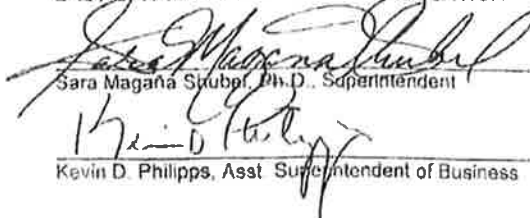 Sara Magaña Shubel
Sara Magaña Shubel, Ph.D., Superintendent
Kevin D. Philipps
Kevin D. Philipps, Asst. Superintendent of Business